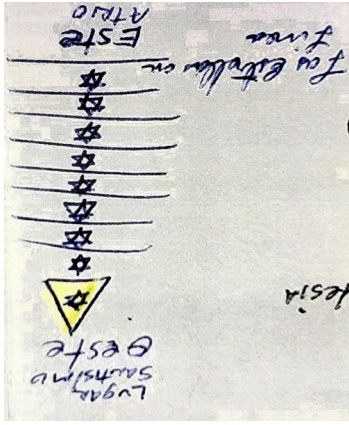 Lugar
Santisimo
Oeste
lesia
Las Estrellas en
Linea
Este
Atrio